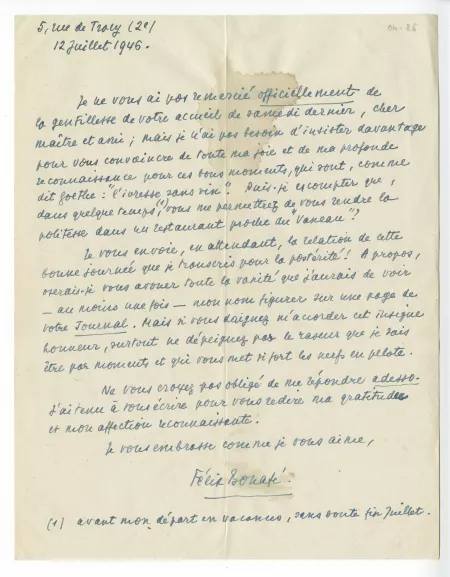 04-26
5, rue de Tracy (2e)
12 Juillet 1946.
Je ne vous ai pas remercié officiellement de
la gentillesse de votre accueil de samedi dernier, cher
maître et ami ; mais je n'ai pas besoin d'insister davantage
pour vous convaincre de toute ma joie et de ma profonde
reconnaissance pour ces bons moments, qui sont, comme
dit Goethe : "l'ivresse sans vin". Puis-je escompter que,
dans quelque temps,(1) vous me permettrez de vous rendre la
politesse dans un restaurant proche du "Vaneau" ?
Je vous envoie, en attendant, la relation de cette
bonne journée que je transcris pour la postérité ! A propos,
oserais-je vous avouer toute la vanité que j'aurais de voir
— au moins une fois — mon nom figurer sur une page de
votre Journal. Mais si vous daignez m'accorder cet insigne
honneur, surtout ne dépeignez pas le raseur que je sais
être par moments et qui vous met si fort les nerfs en pelote.
Ne vous croyez pas obligé de me répondre adesso.
J'ai tenu à vous écrire pour vous redire ma gratitude
et mon affection reconnaissante.
Je vous embrasse comme je vous aime,
Félix Bonafé.
(1) avant mon départ en vacances, sans doute fin Juillet.